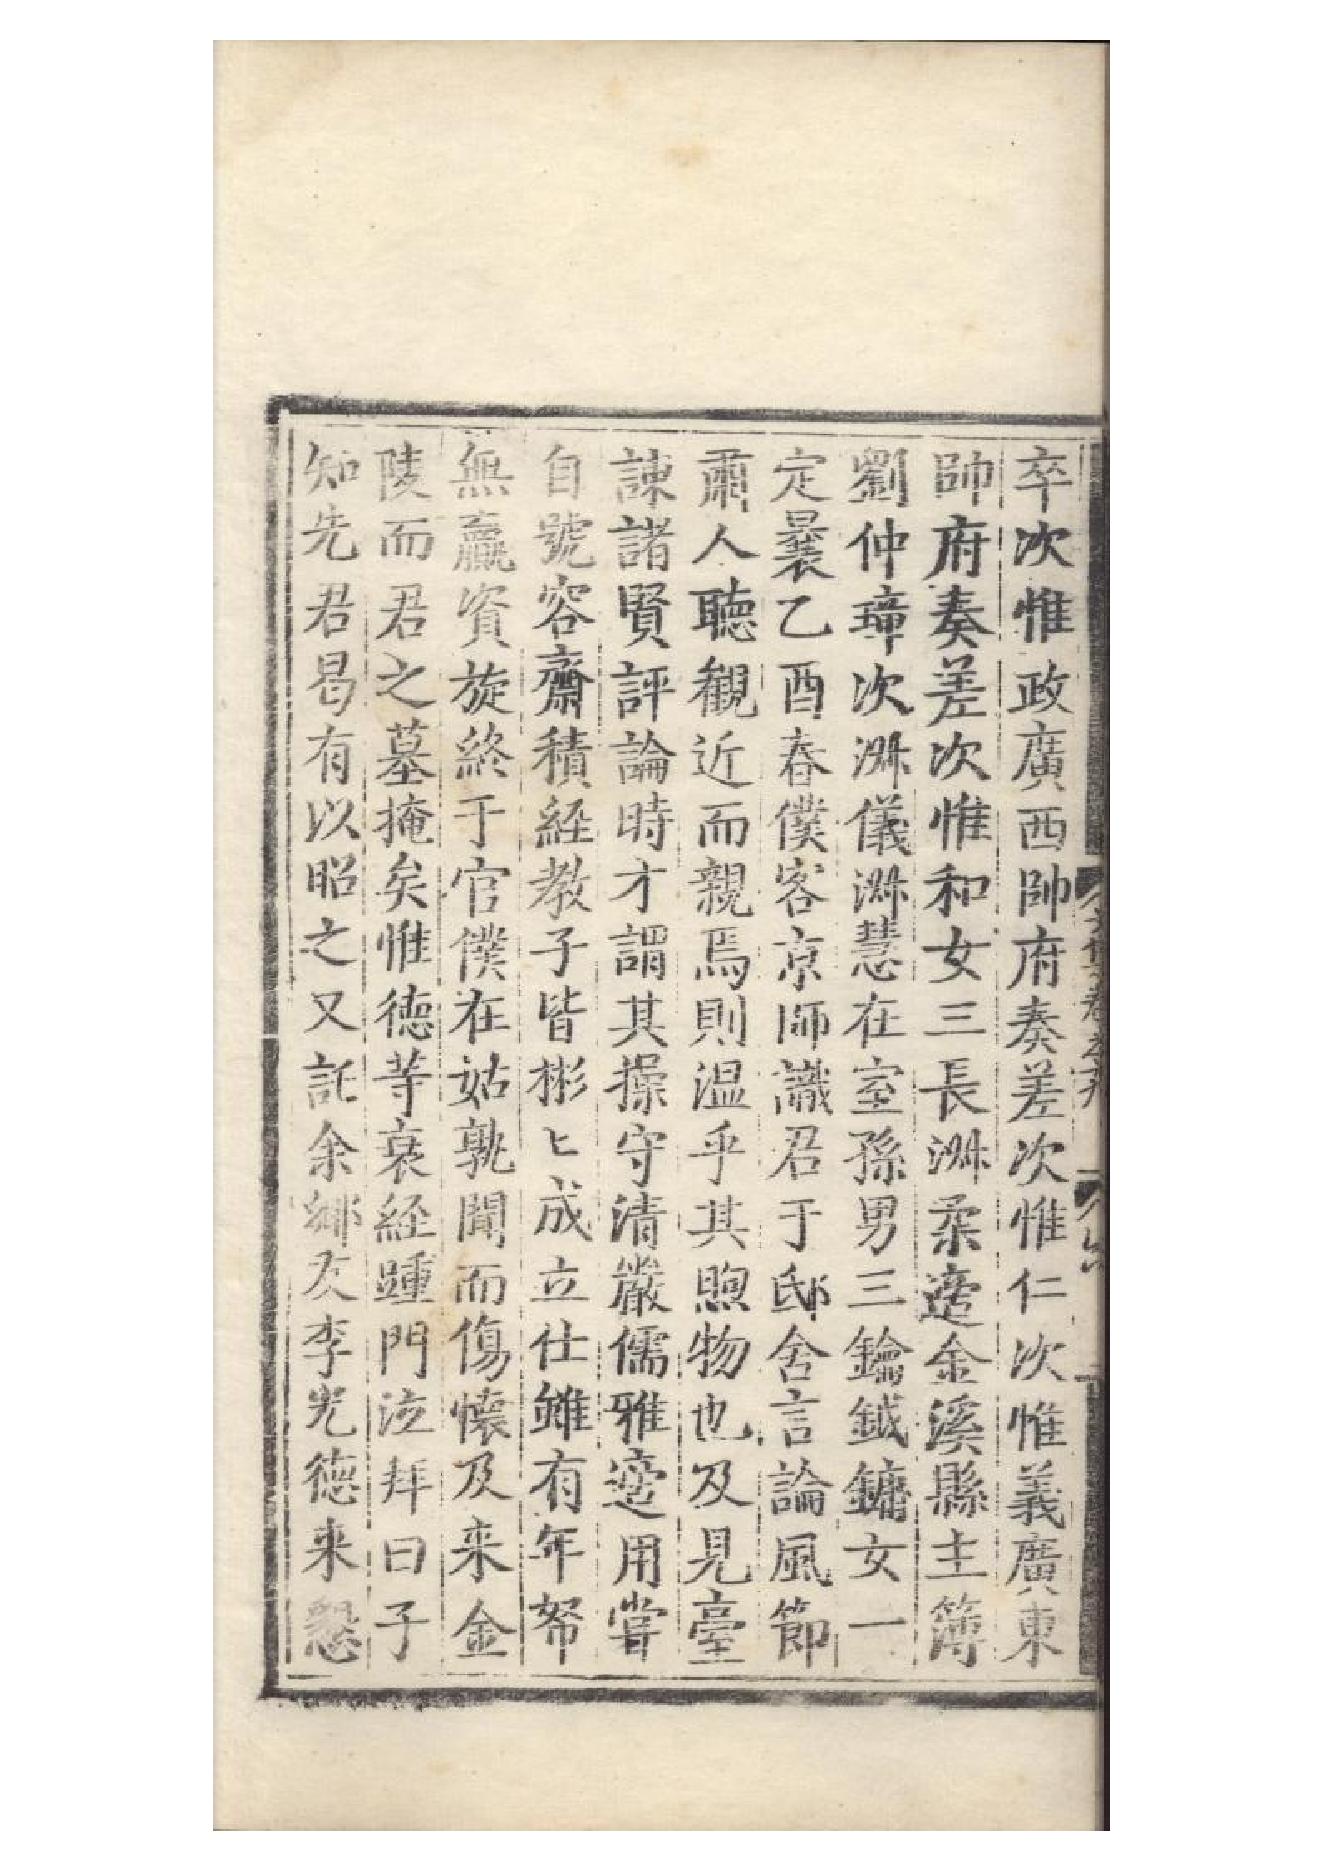 卒次惟政廣西帥府奏差次惟仁次惟義廣東
帥府奏差次惟和女三長淋柔適金溪縣主簿
劉仲璋次淋儀淋慧在室孫男三鑰鉞鏞女一
定曩乙酉春僕客京師識君于邸舍言論風節
肅人聽觀近而親焉則温乎其煦物也及見臺
諫諸賢評論時才謂其操守清嚴儒雅適用嘗
自號容齋積経教子皆彬匕成立仕雖有年帑
無贏資旋終于官僕在姑孰聞而傷懷及来金
陵而君之墓掩矣惟徳等衰経踵門泣拜曰子
知先君曷有以昭之又託余鄉友李光徳来懇